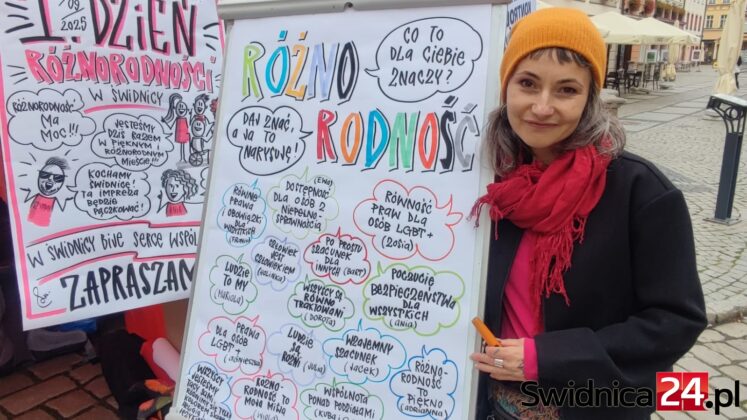 09
2025
1. DZIEŃ
RÓŻNORODNOŚCI
W ŚWIDNICY
RÓŻNORODNOŚĆ
MA
MOC!!!
JESTEŚMY
DZIŚ RAZEM
W PIĘKNYM
RÓŻNORODNYM
MIEŚCIE!
KOCHAMY
ŚWIDNICĘ!
TA IMPREZA
BĘDZIE
PĄCZKOWAĆ!
W ŚWIDNICY BIJE SERCE
ZAPRASZAM
RÓŻNO
RODNOŚĆ
CO TO
DLA CIEBIE
ZNACZY?
DAJ ZNAĆ,
A JA TO
NARYSUJĘ!
RÓWNE
PRAWA
OBOWIĄZKI
DLA
WSZYSTKICH
DOSTĘPNOŚĆ
(EWA)
DLA OSÓB Z
NIEPEŁNO-
SPRAWNOŚCIĄ
RÓWNOŚĆ
PRAW DLA
OSÓB LGBT+
(ZOSIA)
CZŁOWIEK
JEST
CZŁOWIEKIEM
PO PROSTU
SZACUNEK
DLA
INNYCH (BART)
LUDZIE
TO MY
(MARIOLA)
WSZYSCY SĄ
RÓWNO
TRAKTOWANI
(DOROTA)
POCZUCIE
BEZPIECZEŃSTWA
DLA
WSZYSTKICH
(ANIA)
PRAWA
DLA OSÓB
LGBT+
(AGNIESZKA)
LUDZIE
SĄ
RÓŻNI (JULIA)
WZAJEMNY
SZACUNEK
(JACEK)
RÓŻNO-
RODNOŚĆ TO
PIĘKNO
(ADRIANNA)
WSZYSCY
JESTEŚMY
RÓŻNO-
RODNOŚĆ TO
MOJA MISJA
WSPÓLNOTA
PONAD PODZIAŁAMI
Swidnica24.pl